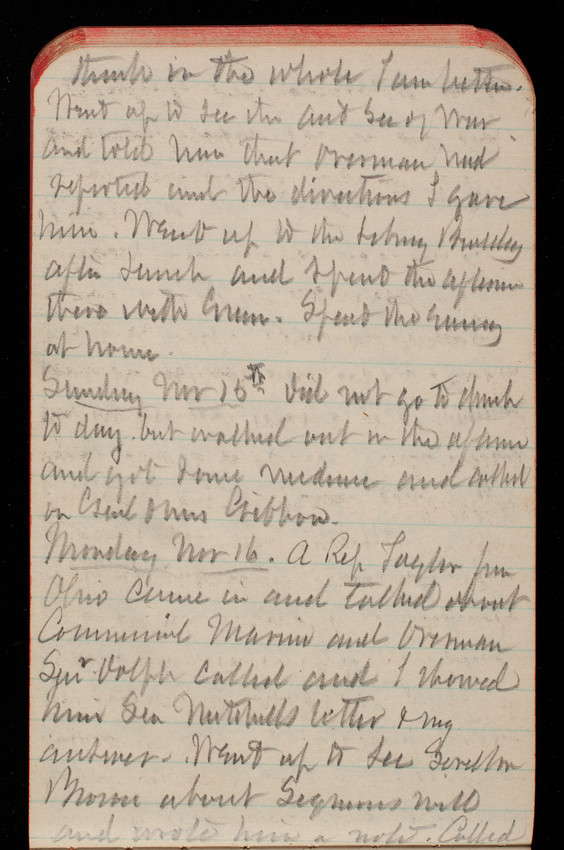 think on the whole I am better.
Went up to see the Asst Sec of War
and told him that Overman had
reported and the directions I gave
him. Went up to the Library Building
after lunch and spent the afternoon
there with Green. Spent the evening
at home.
Sunday Nov 15th Did not go to church
to day. but walked out in the afternoon
and got some medicine and called
on Genl & Mrs Gibbon.
Monday Nov 16. A Rep Taylor from
Ohio came in and talked about
Commercial Marine and Overman
Senr Dolph called and I showed
him Sen Mitchells letter & my
answer. Went up to see
about will
and wrote him a note. Called